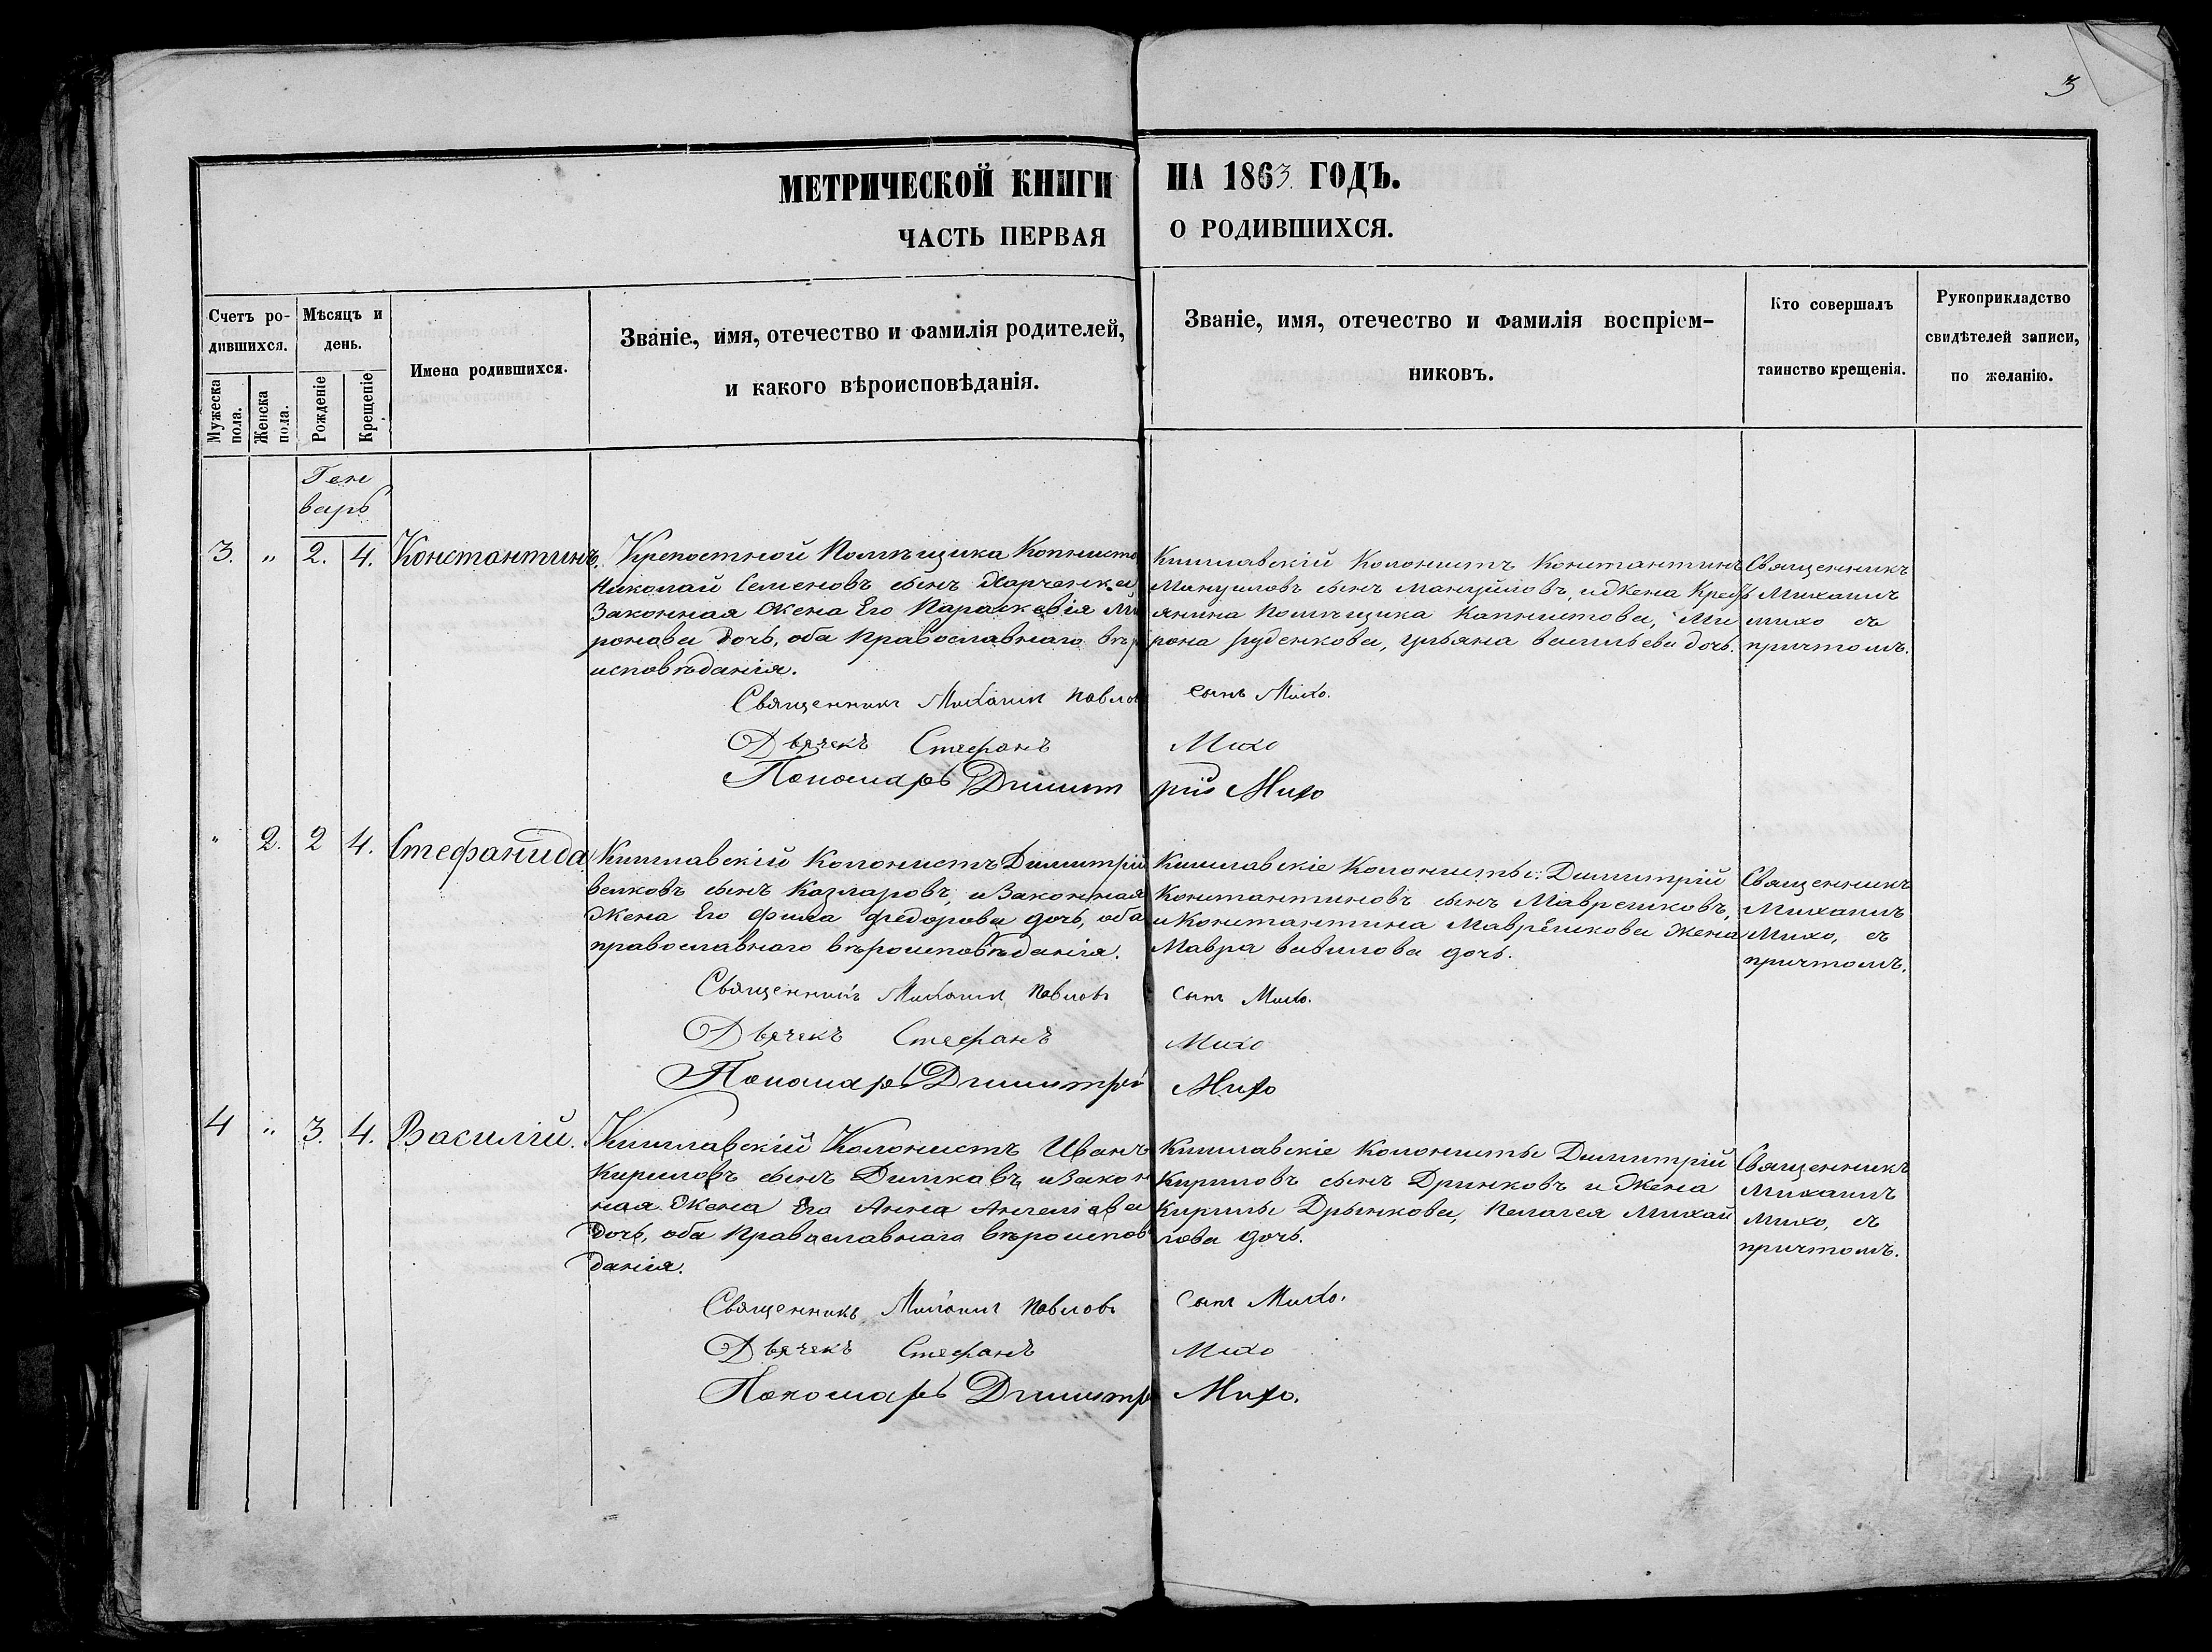 3
МЕТРИЧЕСКОЙ КНИГИ НА 1863. ГОДЪ.
ЧАСТЬ ПЕРВАЯ О РОДИВШИХСЯ.
Счетъ ро-
дившихся.
Мужеска пола.
Женска пола.
Мѣсяцъ и
день.
Рожденіе
Крещеніе
Имена родившихся.
Званіе, имя, отечество и фамилія родителей,
и какого вѣроисповѣданія.
Званіе, имя, отечество и фамилія воспріем-
никовъ.
Кто совершалъ
таинство крещенія.
Рукоприкладство
свидѣтелей записи,
по желанію.
Ген
варь
3. „ 2. 4. Константинъ.
Крепостной Помѣщика
Николай Семеновъ сынъ Харченка и
Законная Жена Его Параскевія Ми
ронова дочь, оба Православнаго вѣр
исповѣданія.
Кишлавскій Колонистъ Константинъ
Мануиловъ сынъ Мануйловъ, и Жена
янина Помѣщика Капнистова, Ми
рона Руденкова, Ульяна Васильева дочь.
Священникъ
Михаилъ
Михо съ
причтомъ.
Священникъ Михаилъ Павловъ сынъ Михо.
Дьячекъ Стефанъ Михо
Пономарь Димит рій Михо
„ 2. 2 4. Стефанида
Кишлавскій Колонистъ Димитрій
Велковъ сынъ Казларовъ, и Законная
Жена Его Федорова дочь, оба
православнаго вѣроисповѣданія.
Кишлавскіе Колонисты: Димитрій
Константиновъ сынъ Мавренковъ,
и Константина Мавренкова Жена
Мавра Вавилова дочь.
Священникъ
Михаилъ
Михо, съ
причтомъ.
Священникъ Михаилъ Павловъ сынъ Михо.
Дьячекъ Стефанъ Михо
Пономарь Димитрій Михо
4 „ 3. 4. Василій.
Кишлавскій Колонистъ Иванъ
Кириловъ сынъ Димковъ и Закон
ная Жена Его Анна Ангелова
дочь, оба Православнаго вѣроиспов
данія.
Кишлавскіе Колонисты Димитрій
Кириловъ сынъ Дринковъ и Жена
Кирилы Дрынкова, Пелагея Михай
лова дочь.
Священникъ
Михаилъ
Михо, съ
причтомъ.
Священникъ Михаилъ Павловъ сынъ Михо.
Дьячекъ Стефанъ Михо
Пономарь Димитрі Михо.